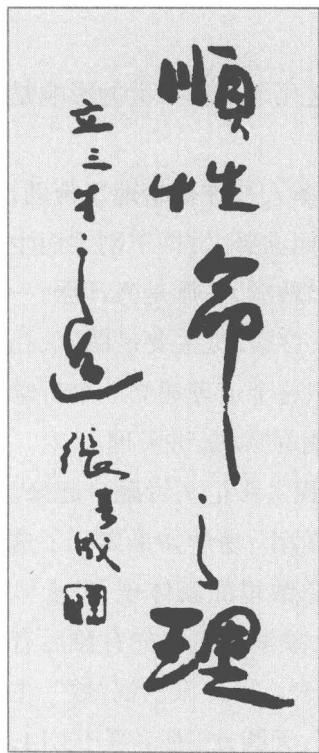 順性命之理
立三才之道 張其成